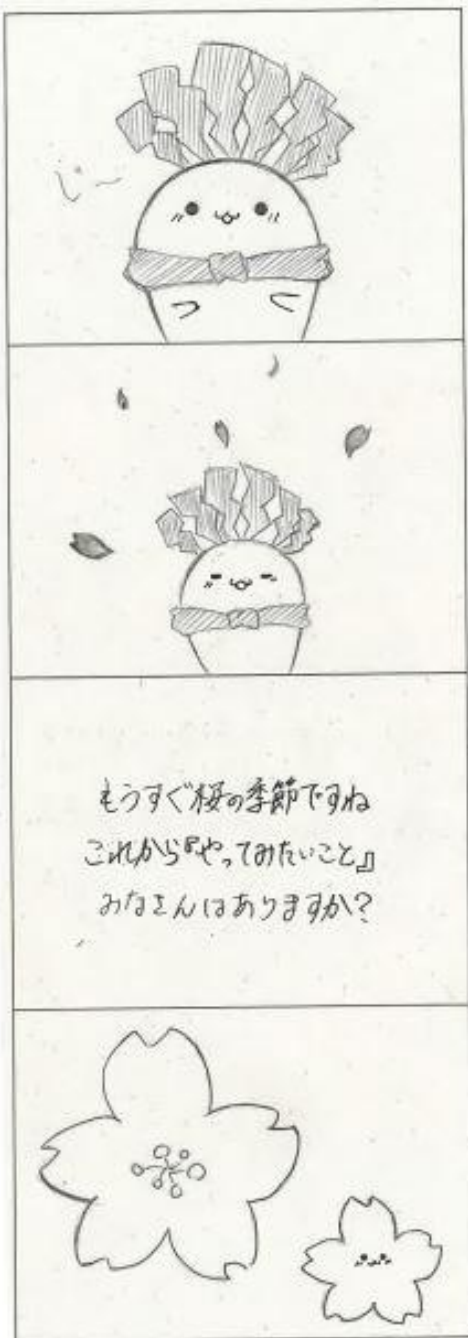 じー
もうすぐ桜の季節ですね
これから『やってみたいこと』
みなさんはありますか?